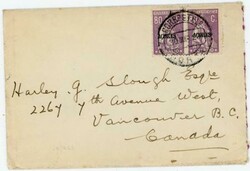 80 C
Harley. G. Slough Esqre
2267 7th Avenue West,
Vancouver B.C.
Canada